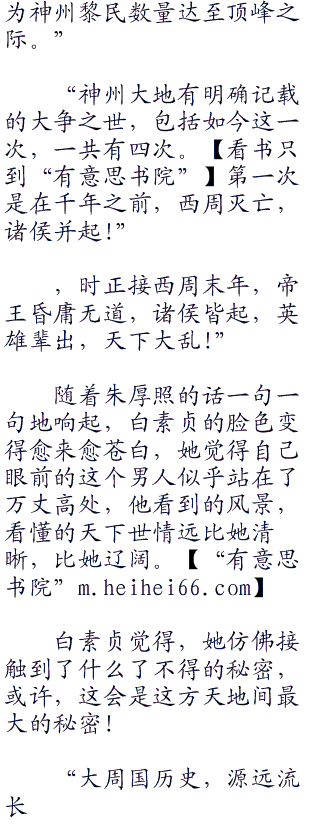 为神州黎民数量达至顶峰之
际。”
“神州大地有明确记载
的大争之世，包括如今这一
次，一共有四次。【看书只
到“有意思书院”】第一次
是在千年之前，西周灭亡，
诸侯并起!”
，时正接西周末年，帝
王昏庸无道，诸侯皆起，英
雄辈出，天下大乱!”
随着朱厚照的话一句一
句地响起，白素贞的脸色变
得愈来愈苍白，她觉得自己
眼前的这个男人似乎站在了
万丈高处，他看到的风景，
看懂的天下世情远比她清
晰，比她辽阔。【“有意思
书院”m.heihei66.com】
白素贞觉得，她仿佛接
触到了什么了不得的秘密，
或许，这会是这方天地间最
大的秘密!
“大周国历史，源远流
长